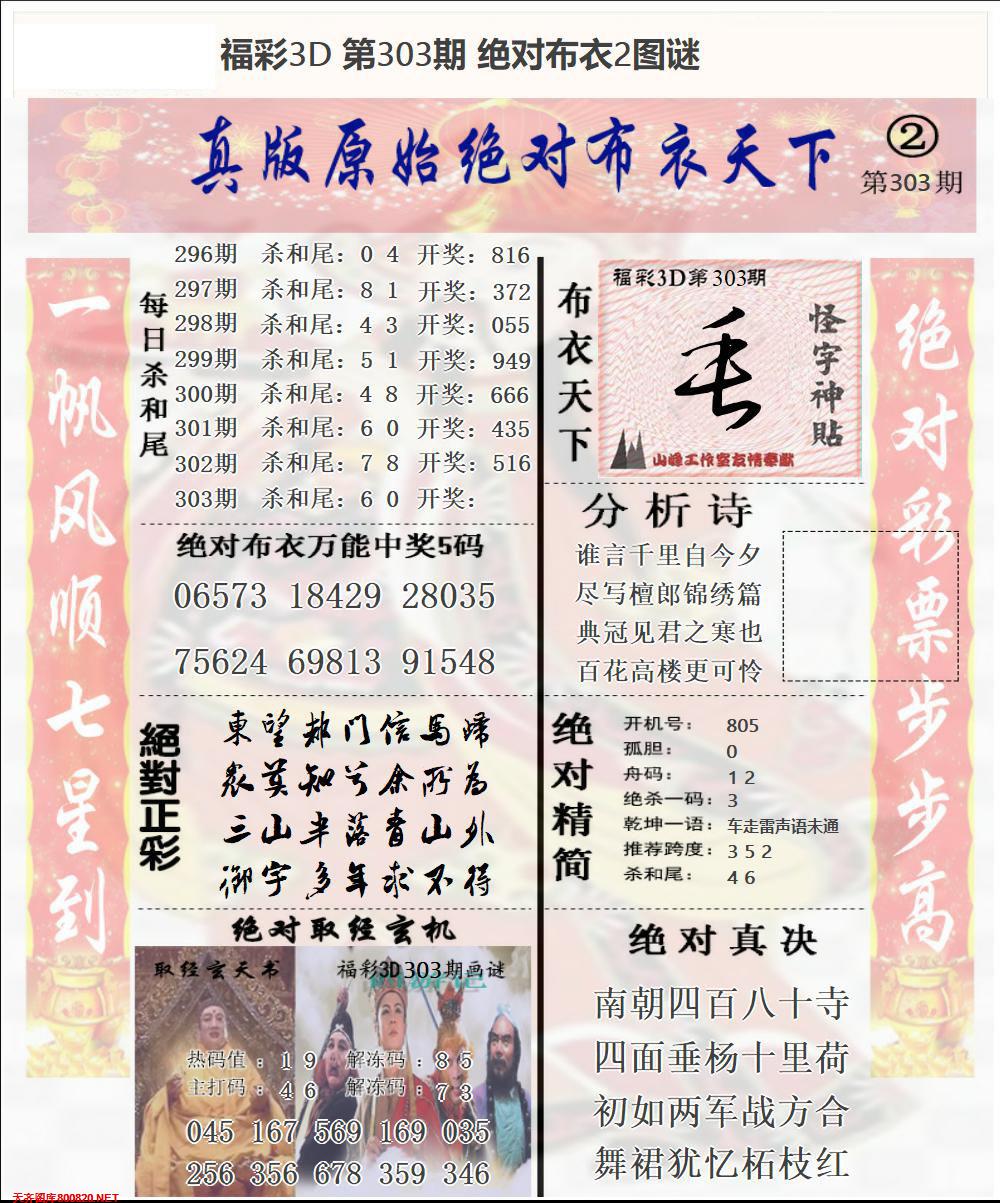 福彩3D 第303期 绝对布衣2图谜
真版原始绝对布衣天下
②
第303期
一帆风顺七星到
每日杀和尾
296期 杀和尾：0 4 开奖：816
297期 杀和尾：8 1 开奖：372
298期 杀和尾：4 3 开奖：055
299期 杀和尾：5 1 开奖：949
300期 杀和尾：4 8 开奖：666
301期 杀和尾：6 0 开奖：435
302期 杀和尾：7 8 开奖：516
303期 杀和尾：6 0 开奖：
绝对布衣万能中奖5码
06573 18429 28035
75624 69813 91548
絕對正彩
東望都门信馬歸
衆莫知兮余所為
三山半落青山外
御宇多年求不得
绝对取经玄机
取经玄天书
福彩3D303期画谜
热码值：1 9 解冻码：8 5
主打码：4 6 解冻码：7 3
045 167 569 169 035
256 356 678 359 346
布衣天下
福彩3D第303期
怪字神貼
山峰工作室友情奉献
分析诗
谁言千里自今夕
尽写檀郎锦绣篇
典冠见君之寒也
百花高楼更可怜
绝对精简
开机号：805
孤胆：0
舟码：1 2
绝杀一码：3
乾坤一语：车走雷声语未通
推荐跨度：3 5 2
杀和尾：4 6
绝对真决
南朝四百八十寺
四面垂杨十里荷
初如两军战方合
舞裙犹忆柘枝红
绝对彩票步步高
天齐图库800820.NET